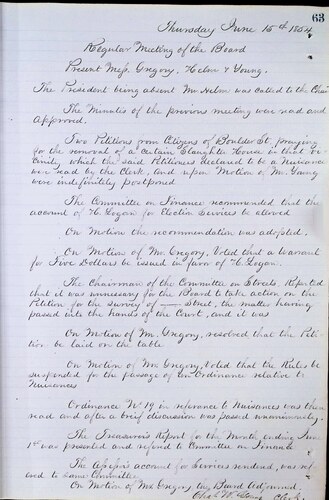 63
Thursday June 15th 1854
Regular Meeting of the Board
Present Mess. Gregory, Helm & Young.
The President being absent Mr Helm was called to the Chair
The Minutes of the previous meeting were read and
Approved.
Two Petitions from Citizens of Boulder St. praying
for the removal of a certain Slaughter House in that Vi-
cinity which the said Petitioners declared to be a Nuisance
were read by the Clerk, and upon Motion of Mr Young
were indefinitely postponed
The Committee on Finance recommended that the
account of H. Logan for Election Services be allowed
On Motion the recommendation was adopted.
On Motion of Mr. Gregory, Voted that a Warrant
for Five Dollars be issued in favor of H. Logan.
The Chairman of the Committee on Streets, Reported
that it was unnecessary for the Board to take action on the
Petition for the survey of —— Street, the matter having
passed into the hands of the Court, and it was
On Motion of Mr. Gregory, resolved that the Peti-
tion be laid on the table
On Motion of Mr Gregory, Voted that the Rules be
suspended for the passage of an Ordinance relative to
Nuisances
Ordinance No 19 in reference to Nuisances was then
read and after a brief discussion was passed unanimously.
The Treasurer's Report for the Month ending June
1st was presented and referred to Committee on Finance
The Assessor's account for Services rendered, was ref-
ered to same Committee
On Motion of Mr Gregory the Board Adjourned.
Chas W. Young Clerk